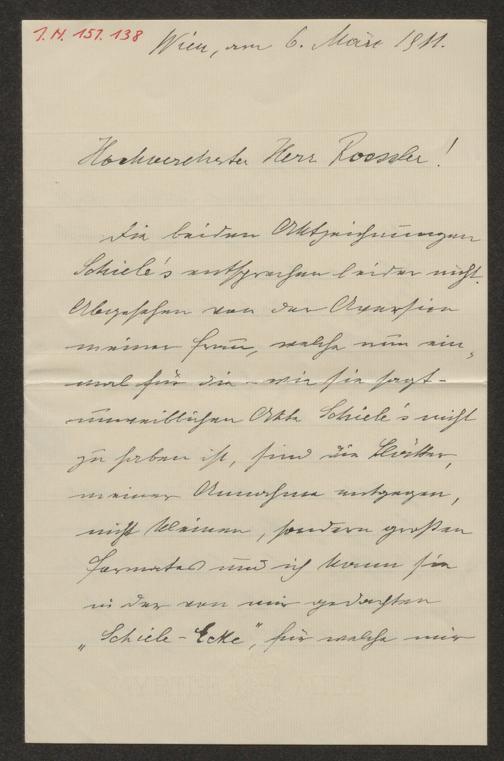 J. N. 151.138
Wien, am 6. März 1911.
Hochverehrter Herr Roessler!
Die beiden Aktzeichnungen
Schiele's entsprechen leider nicht.
Abgesehen von der Aversion
meiner Frau, welche nun ein-
mal für die – wie sie sagt –
unweiblichen Akte Schiele's nicht
zu haben ist, sind die Blätter,
meiner Annahme entgegen,
nicht kleinen, sondern großen
Formates und ich kann sie
in der von mir gedachten
„Schiele-Ecke", für welche mir